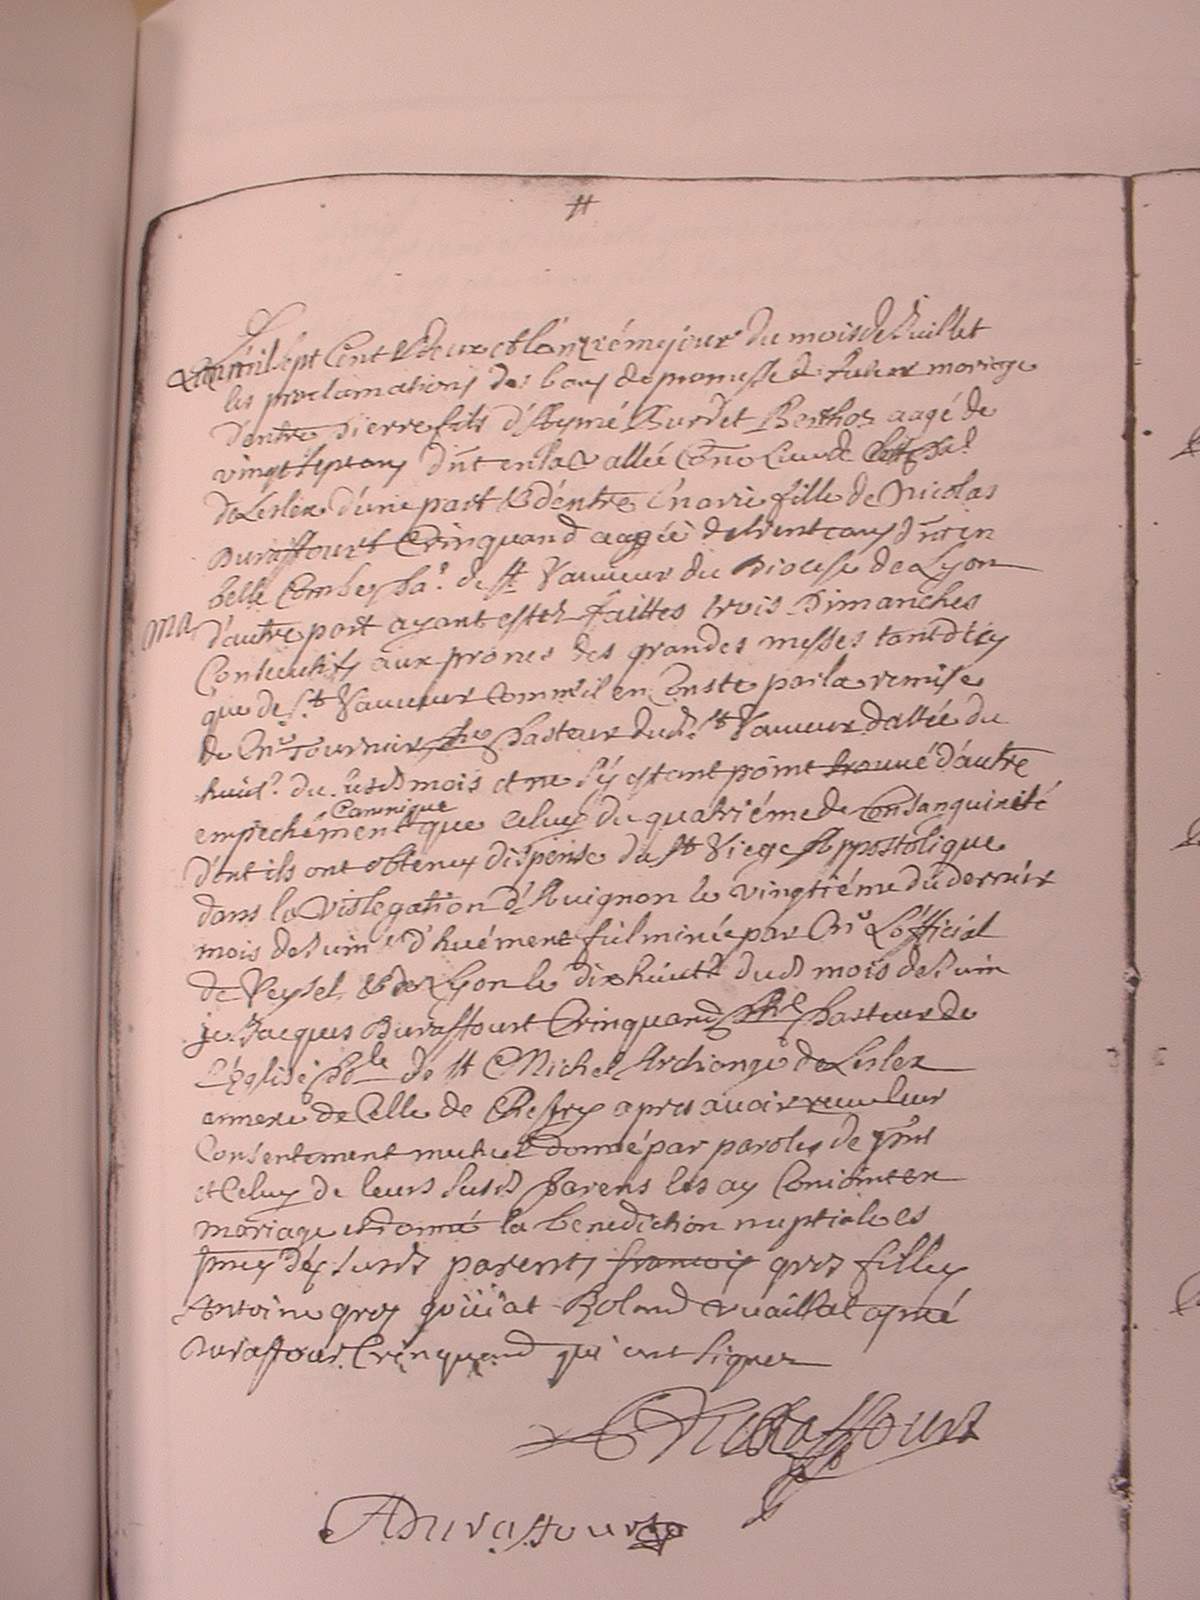 L'an mil sept cent & deux et l'onziéme jour du mois de Juillet
les proclamations des bans de promesse de futur mariage
d'entre pierre fils d'Aymé Burdet Berthod aagé de
vingt sept ans d'nt en la vallée
de Leslex d'une part & d'entre Marie fille de Nicolas
Duraffourt Crinquand aagée de trent ans d'nt en
belle Combe pa. de st Vauveur du Diocese de Lyon
ma
d'autre part ayant estez faittes trois Dimanches
Consecutifs aux prones des grandes messes tant d'icy
que de st Vauveur comme il en Conste par la remise
de Mr Tournier pbre pasteur dud. st Vauveur dattée du
huict. du susd mois et ne s'y estant point trouvé d'autre
Canonique
empechément que celuy du quatriéme de Consanguinité
dont ils ont obtenus dispense du st Siege Appostolique
dans la Vislegation d'Avignon le vingtiéme du dernier
mois de Juin & d'huément fulminée par Mr L'official
de Seysel & de Lyon le dix huict dud mois de Juin
je Jacques Duraffourt Crinquand pbre pasteur de
L'églisé p.le de st Michel Archange de Leslex
annexe de Celle de Chesery apres avoir receu leur
Consentement mutuel donné par paroles de p'nt
et Celuy de leurs susd parens les ay Conioint en
mariage et donné la benediction nuptiale es
p'nces des susd parents francois gros filly
Antoine gros goiiiat Roland vuaillat aymé
Duraffour Crinquand qui ont signez
Duraffourt
A Duraffourt